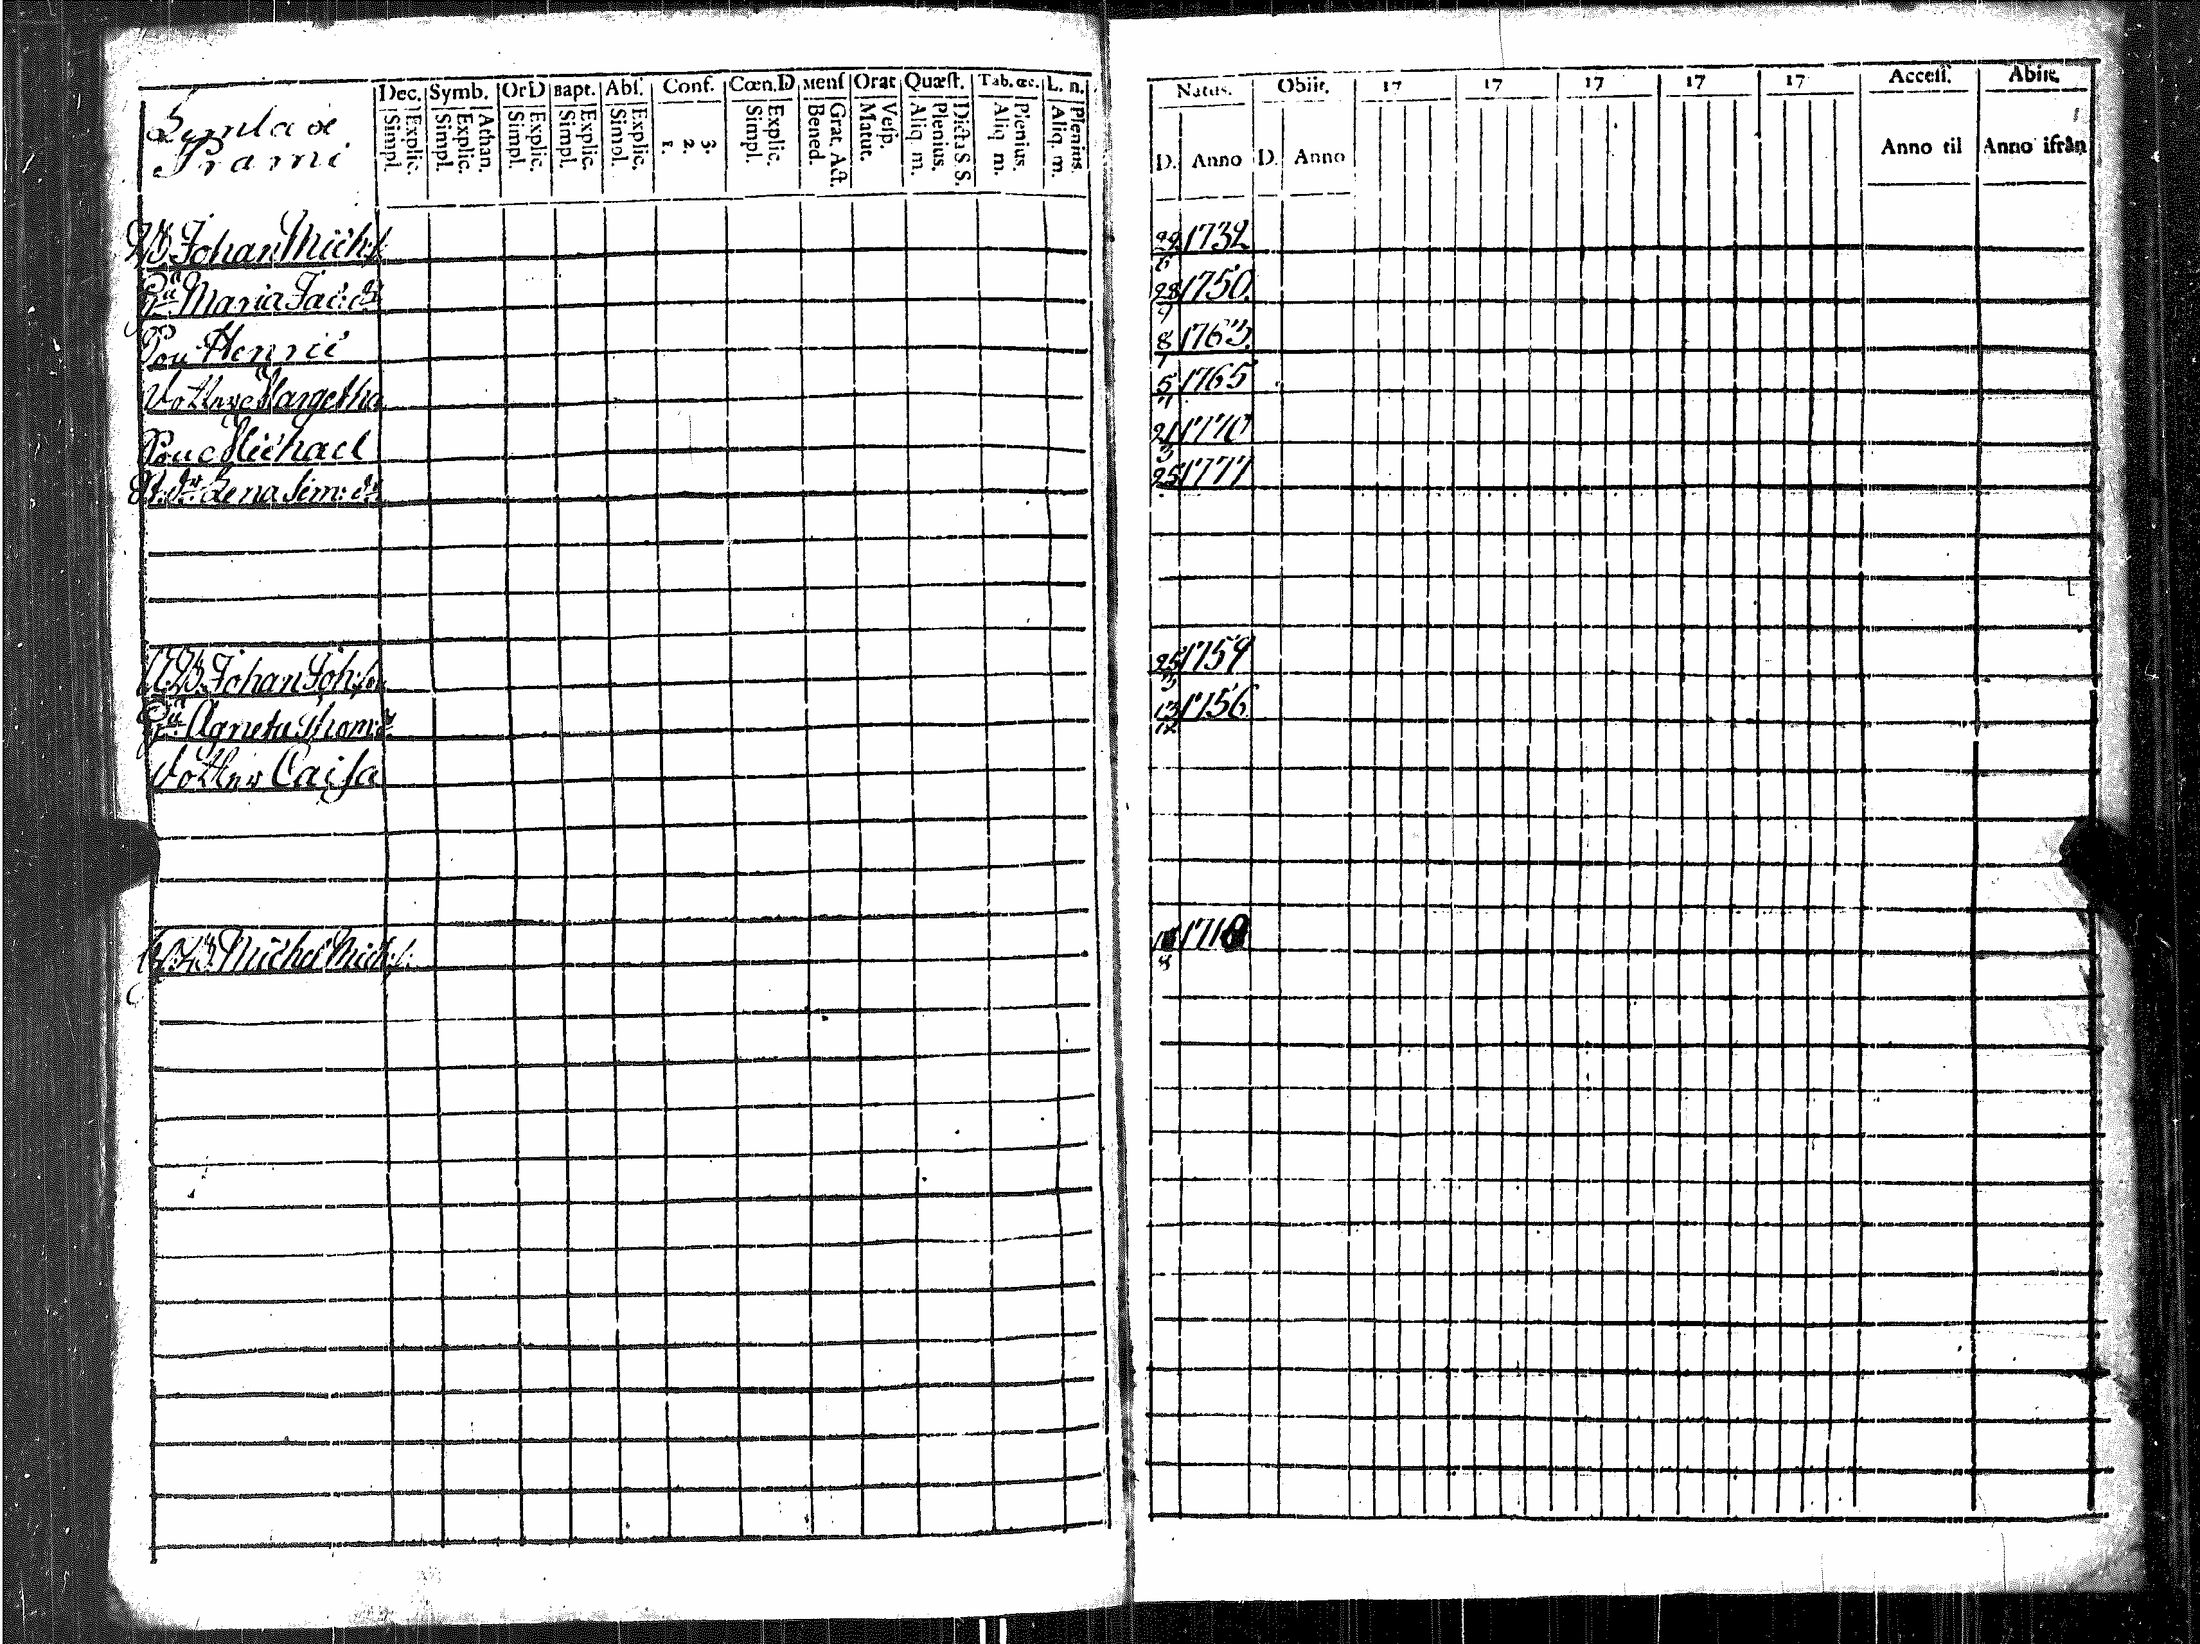 Dec. Symb. OrD Bapt. Abs. Conf. Cœn.D Mens Orat Quæst. Tab. œc. L. n.
Explic. Simpl. Athan. Explic. Simpl. Explic. Simpl. Explic. Simpl. Explic. Simpl. 3. 2. 1. Explic. Simpl. Grat. Act. Bened. Vesp. Matut. Dicta S. S. Plenius. Aliq. m. Plenius. Aliq. m. Plenius. Aliq. m.
Natus. Obiit. 17 17 17 17 17 Access. Abiit.
D. Anno D. Anno Anno til Anno ifrån
Prami
Johan Michs: 1732
Maria Jac: dr 28 1750
Son Henric 8 1763.
Dotter Margetha 5 1765
Son Michael 21/3 1770
Lena Sim: dr 25 1777
Johan Joh:son 25/3 1759
Agneta Thom: dr 13/12 1756
Dotter Caisa
Michel Mich:s: